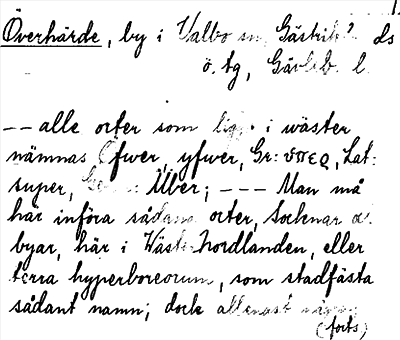 Överhärde, by i Valbo sn, Gästrikl. ds
ö. tg, Gävleb. l.
-- alle orter som ligga i wäster
nämnas Öfwer, yfwer, Gr: υπερ, Lat:
super, Über; --- Man må
här införa sådana orter, Socknar
byar, här i Wäster Nordlanden, eller
terra hyperboreorum, som stadfästa
sådant namn; dock allenast några
(forts)